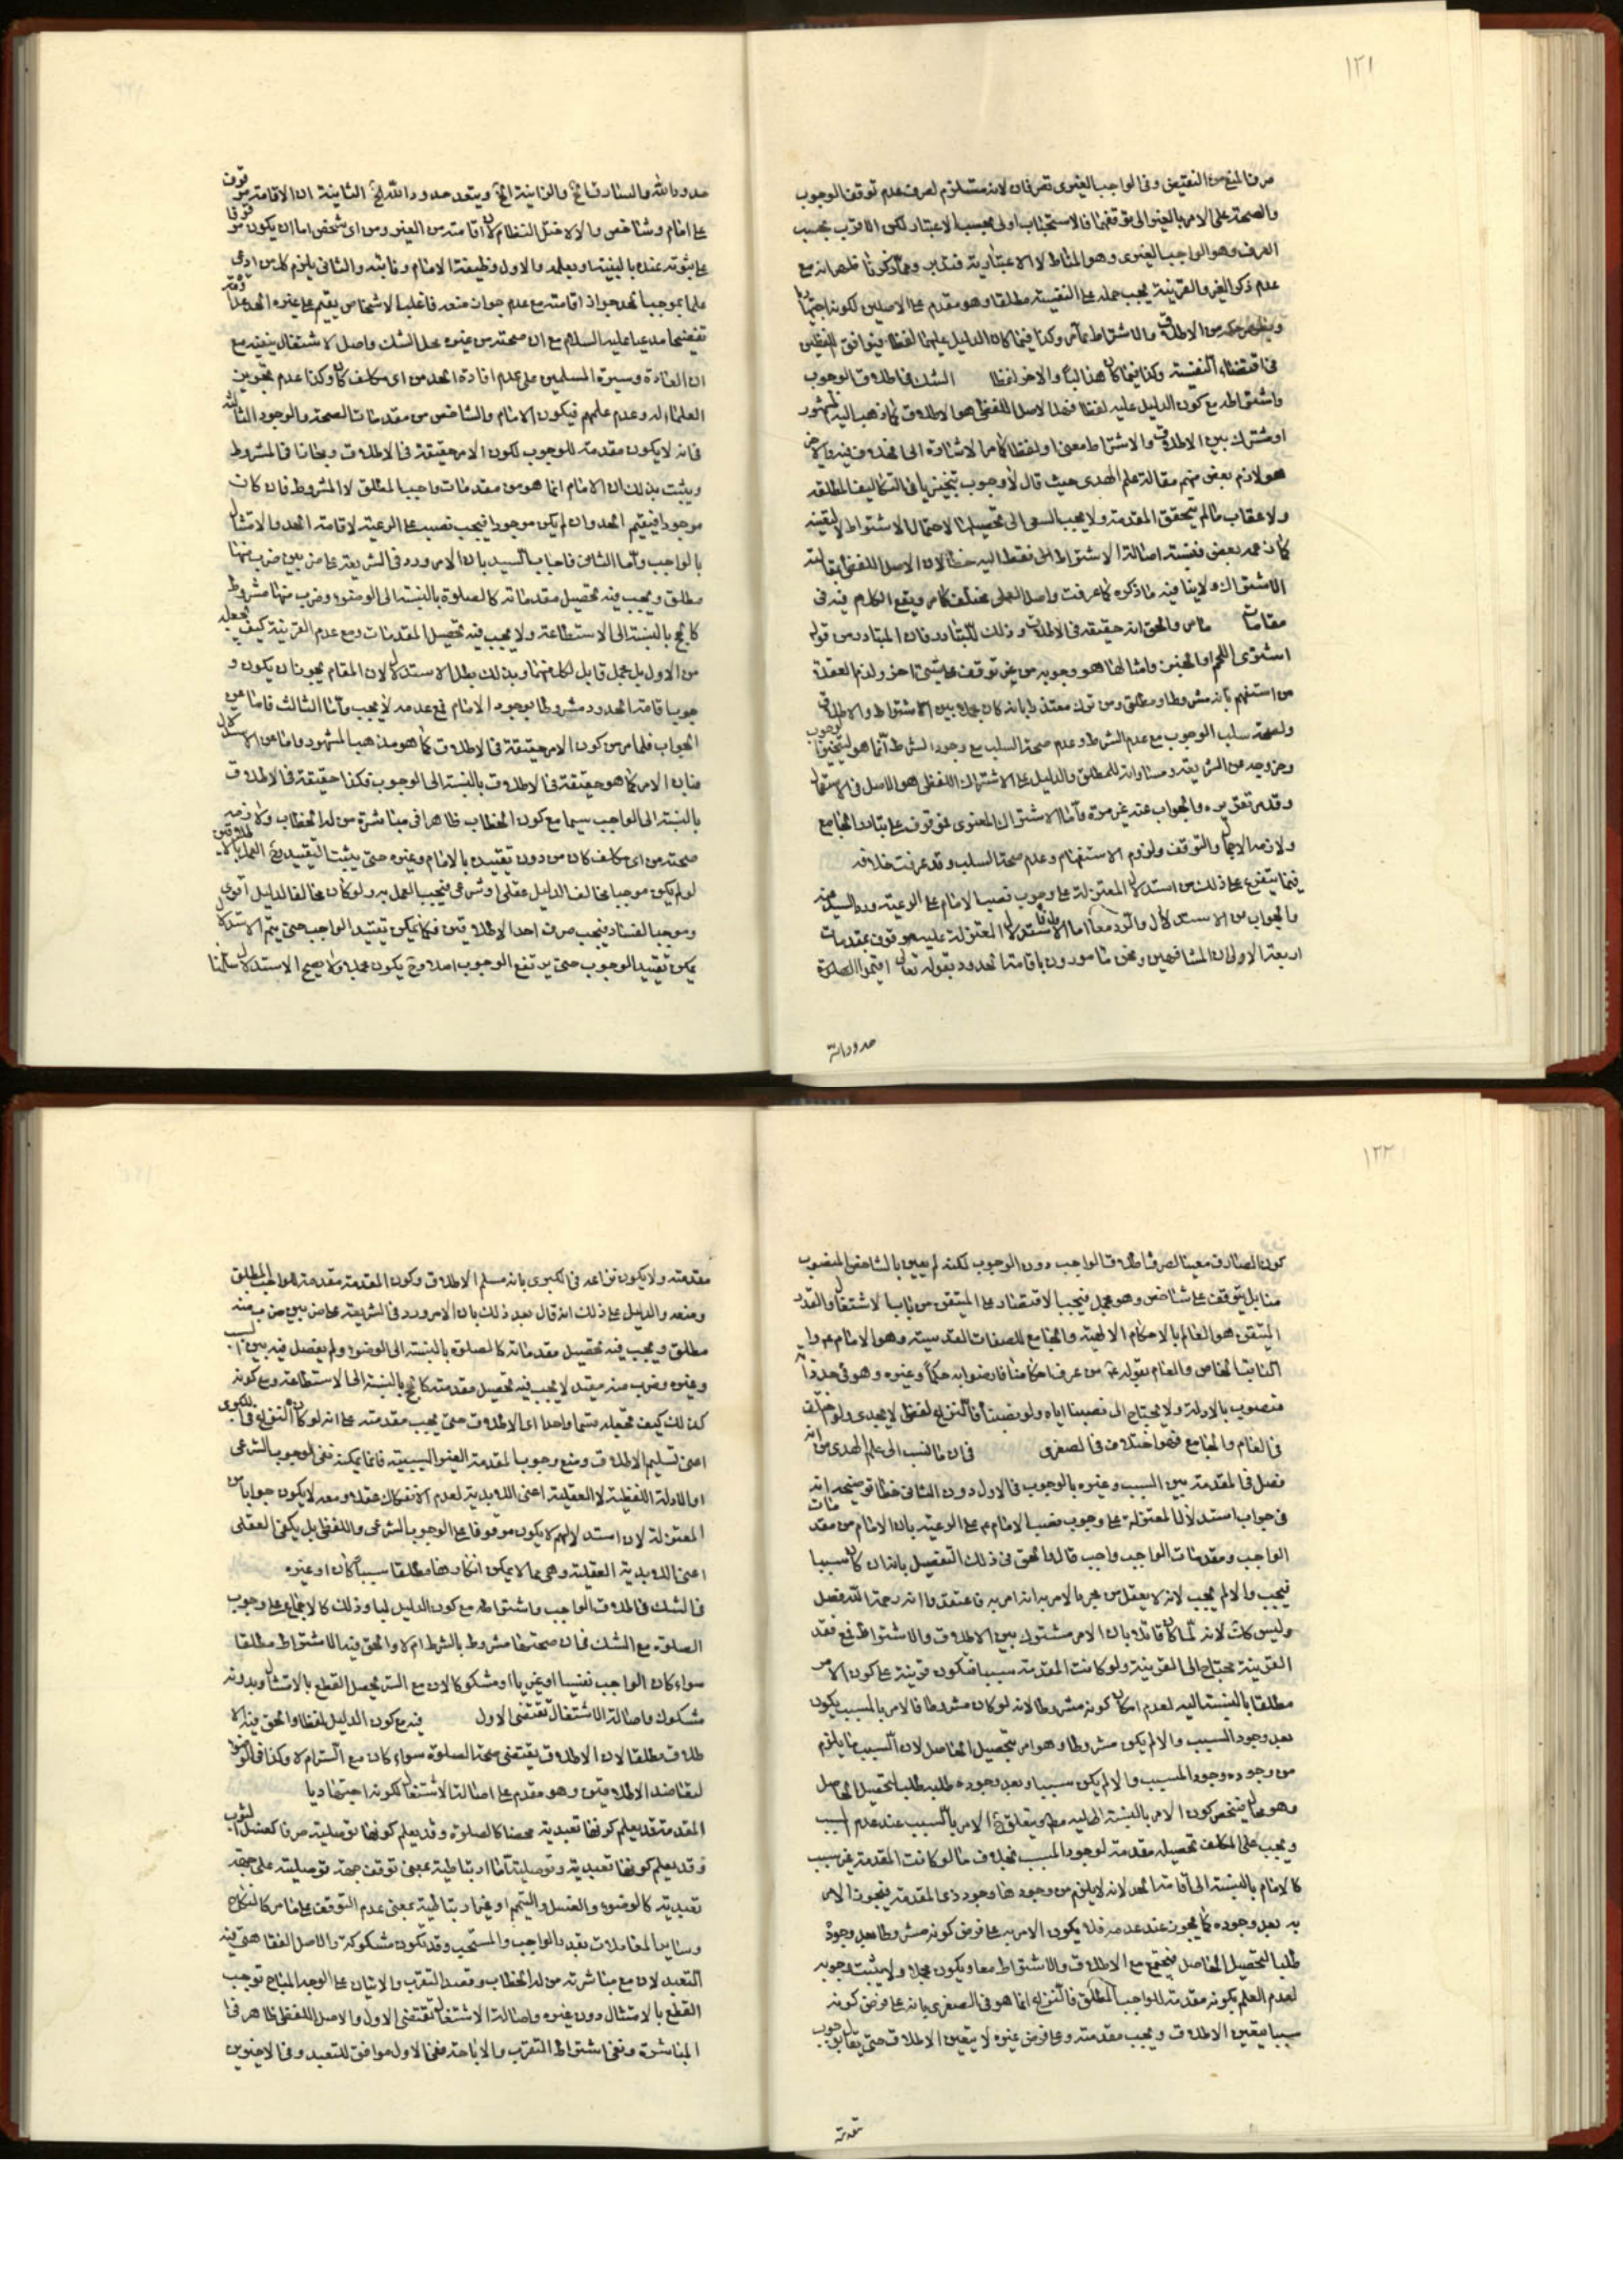 ١٢١
صرفا لمنع من النقيض وفى الواجب الغيرى تصرفان لانه مستلزم لصرف عدم توقف الوجوب
والصحة على الامر بالغير الى توقفهما فالاستحباب اولى بحسب الاعتبار لكن الاقرب بحسب
العرف وهو الواجب الغيرى وهو المناط لا الاعتبارية فتدبر ومما ذكرنا ظهر انه مع
عدم ذكر الغير والقرينة يجب حمله على النفسية مطلقا وهو مقدم على الاصلين لكونه اجتهاديا
من الاطلاق والاشتراط مما مر وكذا فيما كان الدليل عليهما لفظا فيتوافق اللفظين
فى اقتضاء النفسية وكذا فيما كان هذا لبا والاخر لفظا الشك فى اطلاق الوجوب
واشتراطه مع كون الدليل عليه لفظا فهل الاصل اللفظى هو الاطلاق كما ذهب اليه المشهور
او مشترك بين الاطلاق والاشتراط معنى او لفظا كما مر الاشارة الى الخلاف فيه
هو لازم بعض منهم مقالة علم الهدى حيث قال لا وجوب تنجيزيا فى التكاليف المطلقه
ولا عقاب ما لم يتحقق المقدمة ولا يجب السعى الى تحصيلها لاحتمال الاشتراط
كما زعمه بعض فنسبة اصالة الاشتراط الى فقط اليه خطأ لان الاصل اللفظى
الاشتراك ولا ينافيه ما ذكره كما عرفت واصل العملى مختلف كما مر ويقع الكلام فيه فى
مقامات ما مر والحق انه حقيقة فى الاطلاق وذلك للتبادر فان المتبادر من قوله
اشترى اللحم او الخبز وامثالها هو وجوبه من غير توقف على شىء اخر ولذم العقلاء
من استفهم بانه مشروط او مطلق ومن ترك معتذرا بانه كان مجملا بين الاشتراط والاطلاق
ولصحة سلب الوجوب مع عدم الشرط وعدم صحة السلب مع وجود الشرط
والدليل على الاشتراك اللفظى هو الاصل فى الاستعمال
وقد مر تقريره والجواب عنه غير مرة واما الاشتراك المعنوى فموقوف على تبادر الجامع
ولازمه الاجمال والتوقف ولزوم الاستفهام وعدم صحة السلب وقد عرفت خلافه
فيما يتفرع على ذلك من استدلال المعتزلة على وجوب نصب الامام على الرعية ورد السيد عنه
والجواب عن الاستدلال والرد معا اما الاستدلال المعتزلة عليه موقوف بمقدمات
اربعة الاولى ان المشافهين ونحن مامورون باقامة الحدود بقوله تعالى اقيموا الصلوة
حدود الله
حدود الله والسارق الخ والزانية الخ ويتعد حدود الله الخ الثانية ان الاقامة موقوف
على امام وشاخص والا لاختل النظام لان اقامته من الغير ومن اى شخص اما ان يكون موقوفا
على ثبوته عنده بالبينة او بعلمه والاول وظيفة الامام ونائبه والثانى يلزم كل من ادعى
علما بموجب الحد جواز اقامته مع عدم جواز منعه فاغلب الاشخاص يقيم على غيره الحد
مدعيا عليه السلام مع ان صحته من غيره محل الشك واصل الاشتغال ينفيه مع
ان العادة وسيرة المسلمين على عدم افادة الحد من اى مكلف كان وكذا عدم تجويز
العلماء له وعدم علمهم فيكون الامام والشاخص من مقدمات الصحة والوجود الثالثة
فانه لا يكون مقدمة للوجوب لكون الامر حقيقة فى الاطلاق ومجازا فى المشروط
ويثبت بذلك ان الامام انما هو من مقدمات واجب المطلق لا المشروط فان كان
موجودا فيقيم الحد وان لم يكن موجودا فيجب نصبه على الرعية لاقامة الحد والامتثال
بالواجب واما الثانى فاجاب السيد بان الامر ورد فى الشريعة على ضربين ضرب منها
مطلق ويجب فيه تحصيل مقدماته كالصلوة بالنسبة الى الوضوء وضرب منها مشروط
كالحج بالنسبة الى الاستطاعة ولا يجب فيه تحصيل المقدمات ومع عدم القرينة كيف يجعله
من الاول بل مجمل قابل لكل منهما وبذلك بطل الاستدلال لان المقام يجوز ان يكون و
جوب اقامة الحدود مشروطا بوجود الامام فمع عدمه لا يجب واما الثالث فاما عن
الجواب فلما مر من كون الامر حقيقة فى الاطلاق كما هو مذهب المشهور واما عن الاستدلال
فبان الامر كما هو حقيقة فى الاطلاق بالنسبة الى الوجوب فكذا حقيقة فى الاطلاق
بالنسبة الى الواجب سيما مع كون الخطاب ظاهرا فى مباشرة من له الخطاب ولازمه
صحته من اى مكلف كان من دون تقييده بالامام وغيره حتى يثبت التقييد
لو لم يكن موجبا مخالف الدليل عقلى او شرعى فيجب العمل به ولو كان مخالفا لدليل اقوى
وموجبا لفساد فيجب صرف احد الاطلاقين فكما يمكن تقييد الواجب حتى يتم الاستدلال
يمكن تقييد الوجوب حتى يرتفع الوجوب اصلا وح يكون مجملا ولا يصح الاستدلال سلمنا
١٢٢
كون الصارف معينا لصرف اطلاق الواجب دون الوجوب لكنه لم يعين بالشاخص المنصوب
منا بل يتوقف على شاخص وهو مجمل فيجب الاقتصار على المتيقن من باب الاشتغال والقدر
المتيقن هو العالم بالاحكام الالهية والجامع للصفات القدسية وهو الامام عم و
النائب الخاص والعام بقوله عم من عرف احكامنا فارضوا به حكما وغيره وهو فى حد ذاته
منصوب بالادلة ولا يحتاج الى نصبنا اياه ولو نصبنا فالنزاع لفظى لا يجدى ولو خالف
فى العام والجامع فهو اختلاف فى الصغرى فان ما نسب الى علم الهدى من انه
فصل فى المقدمة بين السبب وغيره بالوجوب فى الاول دون الثانى خطا توضيحه انه
فى جواب استدلال المعتزلة على وجوب نصب الامام عم على الرعية بان الامام من مقدمات
الواجب ومقدمات الواجب واجب قال والحق فى ذلك التفصيل بانه ان كان سببا
فيجب والا لم يجب لانه لا يعقل من مجرد الامر به انه امر به فاعتقدوا انه رحمة الله فصل
وليس كك لانه لما كان قائلا بان الامر مشترك بين الاطلاق والاشتراط فمع فقد
القرينة محتاج الى القرينة ولو كانت المقدمة سببا فتكون قرينة على كون الامر
مطلقا بالنسبة اليه لعدم امكان كونه مشروطا لانه لو كان مشروطا فالامر بالمسبب يكون
بعد وجود السبب والا لم يكن مشروطا وهو امر بتحصيل الحاصل لان السبب ما يلزم
من وجوده وجود المسبب والا لم يكن سببا وبعد وجوده طلبه طلب لتحصيل الحاصل
وهو محال فينحصر كون الامر بالنسبة اليه مطلقا ويتعلق الامر بالسبب عند عدم السبب
ويجب على المكلف تحصيله مقدمة لوجود المسبب بخلاف ما لو كانت المقدمة غير سبب
كالامام بالنسبة الى اقامة الحد لانه لا يلزم من وجودها وجود ذى المقدمة فيجوز الامر
به بعد وجوده كما يجوز عند عدمه فلا يكون الامر به على فرض كونه مشروطا بعد وجوده
طلبا لتحصيل الحاصل فيجتمع مع الاطلاق والاشتراط معا ويكون مجملا ولا يثبت وجوبه
لعدم العلم بكونه مقدمة للواجب المطلق فالنزاع انما هو فى الصغرى بانه على فرض كونه
سببا فيتعين الاطلاق ويجب مقدمته وعلى فرض غيره لا يتعين الاطلاق حتى يقال بوجوب
مقدمته
مقدمته ولا يكون نزاعه فى الكبرى بانه مسلم الاطلاق وكون المقدمة مقدمة الواجب المطلق
ومنعه والدليل على ذلك انه قال بعد ذلك بان الامر ورد فى الشريعة على ضربين ضرب منه
مطلق ويجب فيه تحصيل مقدماته كالصلوة بالنسبة الى الوضوء ولم يفصل فيه بين السبب
وغيره وضرب منه مقيد لا يجب فيه تحصيل مقدمته كالحج بالنسبة الى الاستطاعة ومع كونه
كذلك كيف تجعله قسما واحدا اى الاطلاق حتى يجب مقدمته على انه لو كان النزاع فى الكبرى
اعنى تسليم الاطلاق ومنع وجوب المقدمة الغير السببية فانما يمكنه نفى الوجوب الشرعى
او الادلة اللفظية لا العقلية اعنى اللابدية لعدم الانفكاك عقلا ومعه لا يكون جوابا عن
المعتزلة لان استدلالهم لا يكون موقوفا على الوجوب الشرعى واللفظى بل يكفى العقلى
اعنى اللابدية العقلية وهى مما لا يمكن انكارها مطلقا سببا كان او غيره
فى الشك فى اطلاق الواجب واشتراطه مع كون الدليل لبا وذلك كالاجماع على وجوب
الصلوة مع الشك فى ان صحتها مشروط بالشرط ام لا والحق فيه الاشتراط مطلقا
سواء كان الواجب نفسيا او غيريا او مشكوكا لان مع الستر يحصل القطع بالامتثال وبدونه
مشكوك واصالة الاشتغال تقتضى الاول فيه مع كون الدليل لفظا والحق فيه الا
طلاق مطلقا لان الاطلاق يقتضى صحة الصلوة سواء كان مع الستر ام لا وكذا فى
لتعاضد الاطلاقين وهو مقدم على اصالة الاشتغال لكونه اجتهاديا
المقدمة قد يعلم كونها تعبدية محضا كالصلوة وقد يعلم كونها توصلية صرفا كغسل الثوب
وقد يعلم كونها تعبدية وتوصلية اما ارتباطية بمعنى توقف جهة توصلية على جهة
تعبدية كالوضوء والغسل والتيمم او غير ارتباطية بمعنى عدم التوقف على ما مر كالنكاح
وساير المعاملات بقيد الواجب والمستحب وقد تكون مشكوكة والاصل الفقاهتى فيه
التعبد لان مع مباشرته من له الخطاب وقصد التقرب والاتيان على الوجه المباح توجب
القطع بالامتثال دون غيره واصالة الاشتغال تقتضى الاول والاصل اللفظى ظاهر فى
المباشرة ونفى اشتراط التقرب والاباحة ففى الاول موافق للتعبد وفى الاخيرين